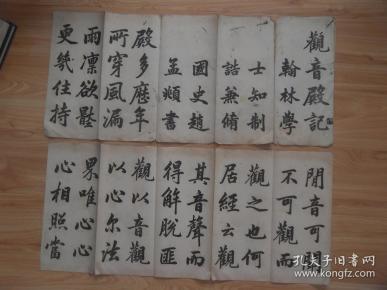 觀音殿記
翰林學
士知制
誥兼脩
國史趙
孟頫書
殿多歷年
所穿風漏
雨凛欲壓
更幾住持
聞音可聞
不可觀而
觀之也何
居經云觀
其音聲而
得解脫匪
觀以音觀
以心尔法
界唯心心
心相照當
孔夫子旧书网